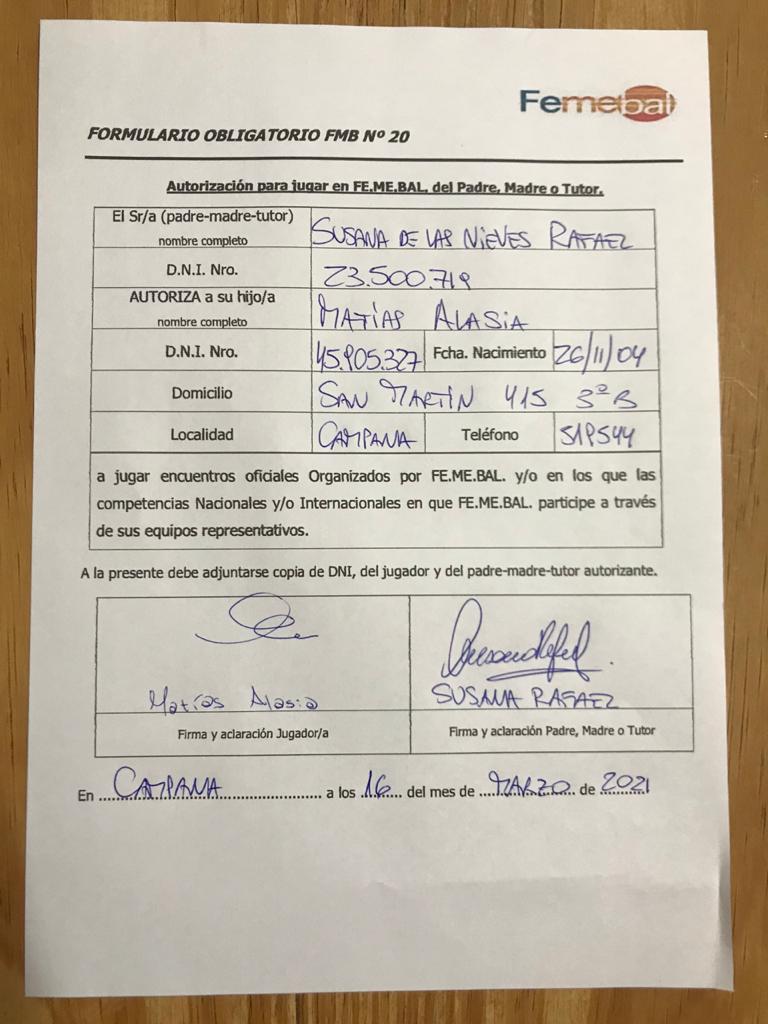 Femebal
FORMULARIO OBLIGATORIO FMB Nº 20
Autorización para jugar en FE.ME.BAL. del Padre, Madre o Tutor.
El Sr/a (padre-madre-tutor)
nombre completo
SUSANA DE LAS NIEVES RAFAEL
D.N.I. Nro.
23.500.719
AUTORIZA a su hijo/a
nombre completo
MATÍAS ALASIA
D.N.I. Nro.
45.905.327
Fcha. Nacimiento
26/11/04
Domicilio
SAN MARTÍN 415 3º B
Localidad
CAMPANA
Teléfono
519544
a jugar encuentros oficiales Organizados por FE.ME.BAL. y/o en los que las
competencias Nacionales y/o Internacionales en que FE.ME.BAL. participe a través
de sus equipos representativos.
A la presente debe adjuntarse copia de DNI, del jugador y del padre-madre-tutor autorizante.
Matías Alasia
SUSANA RAFAEL
Firma y aclaración Jugador/a
Firma y aclaración Padre, Madre o Tutor
En CAMPANA a los 16 del mes de MARZO de 2021